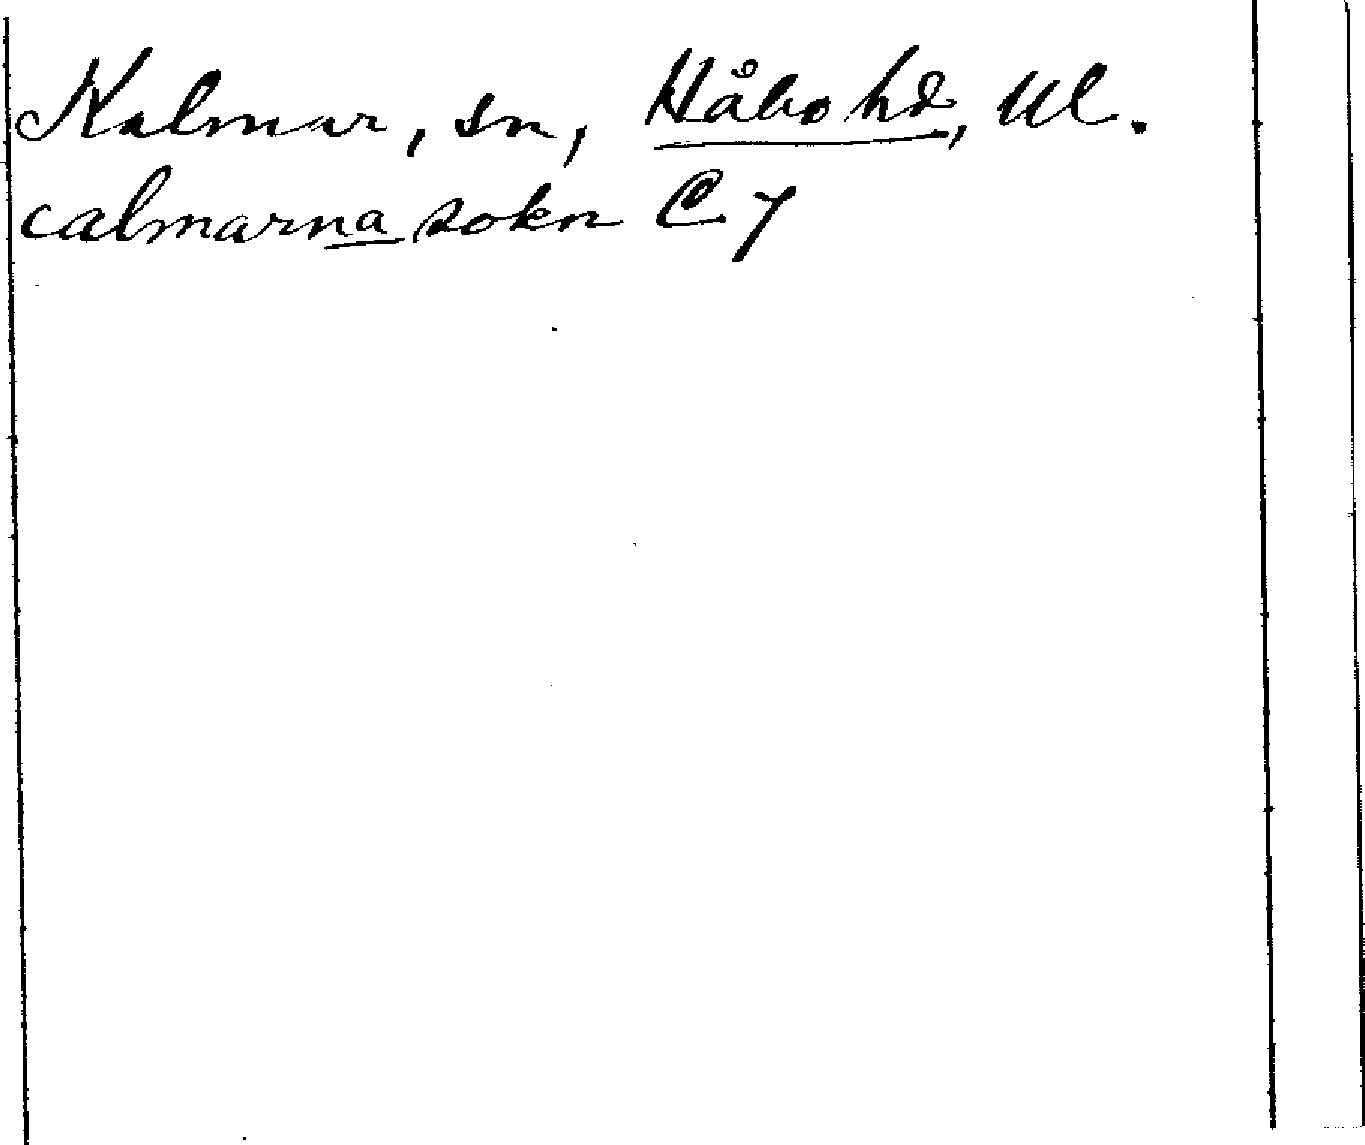 Kalmar, sn, Håbo hd, Ul.
calmarna sokn C 7